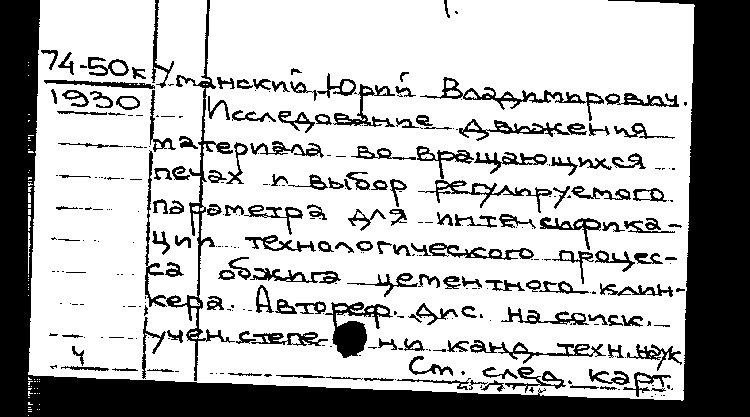 1.
74-50к
1930
Уманский, Юрий Владимирович.
Исследование движения
материала во вращающихся
печах и выбор регулируемого
параметра для интенсифика-
ции технологического процес-
са обжига цементного клин-
кера. Автореф. дис. на соиск.
учен. степени канд. техн. наук
Ч
См. след. карт.